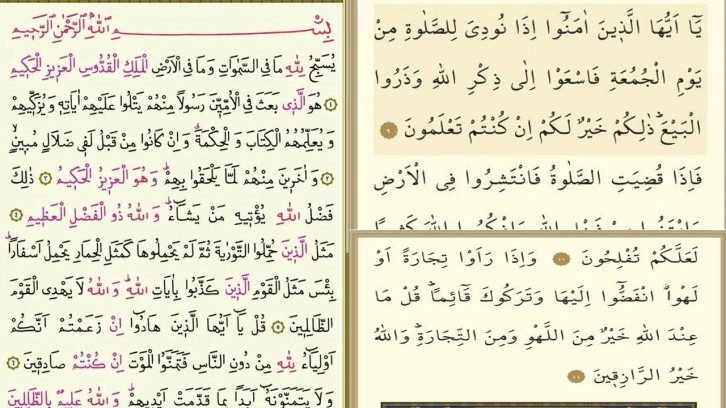 بِسْمِ اللّٰهِ الرَّحْمٰنِ الرَّحِيمِ
يُسَبِّحُ لِلّٰهِ مَا فِى السَّمٰوَاتِ وَمَا فِى الْاَرْضِ الْمَلِكِ الْقُدُّوسِ الْعَزِيزِ الْحَكِيمِ
﴿١﴾ هُوَ الَّذِى بَعَثَ فِى الْاُمِّيّٖنَ رَسُولاً مِنْهُمْ يَتْلُوا عَلَيْهِمْ اٰيَاتِهٖ وَيُزَكّٖيهِمْ
وَيُعَلِّمُهُمُ الْكِتَابَ وَالْحِكْمَةَ وَاِنْ كَانُوا مِنْ قَبْلُ لَفٖى ضَلَالٍ مُبٖينٍ
﴿٢﴾ وَاٰخَرٖينَ مِنْهُمْ لَمَّا يَلْحَقُوا بِهِمْ وَهُوَ الْعَزٖيزُ الْحَكٖيمُ ﴿٣﴾ ذٰلِكَ
فَضْلُ اللّٰهِ يُؤْتٖيهِ مَنْ يَشَاءُ وَاللّٰهُ ذُو الْفَضْلِ الْعَظٖيمِ ﴿٤﴾
مَثَلُ الَّذٖينَ حُمِّلُوا التَّوْرٰيةَ ثُمَّ لَمْ يَحْمِلُوهَا كَمَثَلِ الْحِمَارِ يَحْمِلُ اَسْفَاراً
بِئْسَ مَثَلُ الْقَوْمِ الَّذٖينَ كَذَّبُوا بِاٰيَاتِ اللّٰهِ وَاللّٰهُ لَا يَهْدِى الْقَوْمَ
الظَّالِمٖينَ ﴿٥﴾ قُلْ يَا اَيُّهَا الَّذٖينَ هَادُوا اِنْ زَعَمْتُمْ اَنَّكُمْ
اَوْلِيَاءُ لِلّٰهِ مِنْ دُونِ النَّاسِ فَتَمَنَّوُا الْمَوْتَ اِنْ كُنْتُمْ صَادِقٖينَ ﴿٦﴾
وَلَا يَتَمَنَّوْنَهُ اَبَداً بِمَا قَدَّمَتْ اَيْدٖيهِمْ وَاللّٰهُ عَلٖيمٌ بِالظَّالِمٖينَ
يَا اَيُّهَا الَّذٖينَ اٰمَنُوا اِذَا نُودِىَ لِلصَّلٰوةِ مِنْ
يَوْمِ الْجُمُعَةِ فَاسْعَوْا اِلٰى ذِكْرِ اللّٰهِ وَذَرُوا
الْبَيْعَ ذٰلِكُمْ خَيْرٌ لَكُمْ اِنْ كُنْتُمْ تَعْلَمُونَ ﴿٩﴾
فَاِذَا قُضِيَتِ الصَّلٰوةُ فَانْتَشِرُوا فِى الْاَرْضِ
وَابْتَغُوا مِنْ فَضْلِ اللّٰهِ وَاذْكُرُوا اللّٰهَ كَثٖيراً
لَعَلَّكُمْ تُفْلِحُونَ ﴿١٠﴾ وَاِذَا رَاَوْا تِجَارَةً اَوْ
لَهْواً انْفَضُّوا اِلَيْهَا وَتَرَكُوكَ قَائِماً قُلْ مَا
عِنْدَ اللّٰهِ خَيْرٌ مِنَ اللَّهْوِ وَمِنَ التِّجَارَةِ وَاللّٰهُ
خَيْرُ الرَّازِقٖينَ ﴿١١﴾